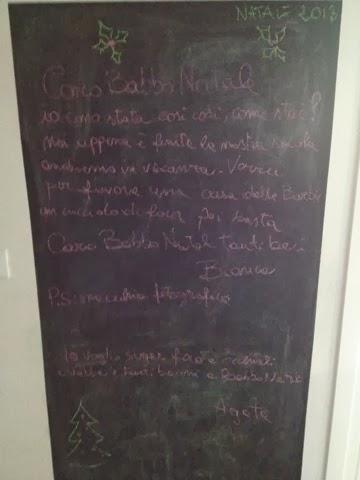 NATALE 2013
Caro Babbo Natale
io sono stata così così, come stai?
noi appena è finita la nostra scuola
andremo in vacanza. Vorrei
per favore una casa delle Barbie
un cucciolo di foca poi basta
Caro Babbo Natale tanti baci
Bianca
P.S: macchina fotografica
Io voglio super
e tanti bacini a Babbo Natale
Agata